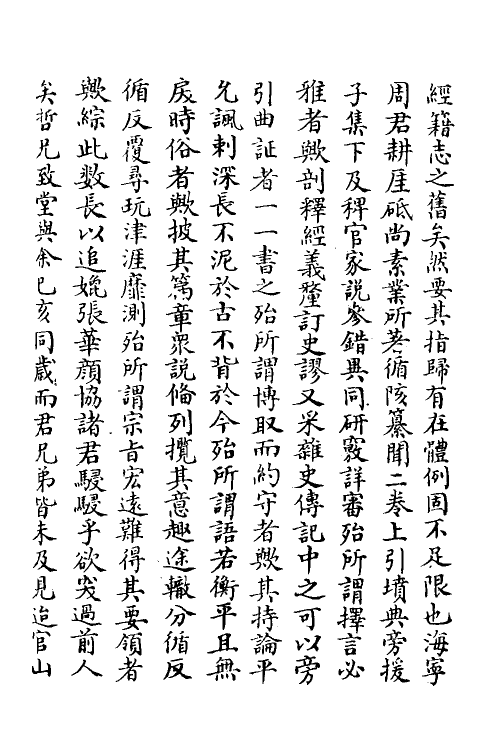 經籍志之舊矣然要其指歸有在體例固不足限也海寧
周君耕厓砥尚素業所著循陔纂聞二卷上引墳典旁援
子集下及稗官家說參錯異同研覈詳審殆所謂擇言必
雅者歟剖釋經義釐訂史謬又采雜史傳記中之可以旁
引曲証者一一書之殆所謂博取而約守者歟其持論平
允諷刺深長不泥於古不背於今殆所謂語若衡平且無
戾時俗者歟披其篇章眾說偹列攬其意趣途轍分循反
循反覆尋玩津涯靡測殆所謂宗㫖宏遠難得其要領者
歟綜此数長以追媲張華顔協諸君駸駸乎欲突過前人
矣哲兄致堂與余己亥同歳而君兄弟皆未及見迨官山